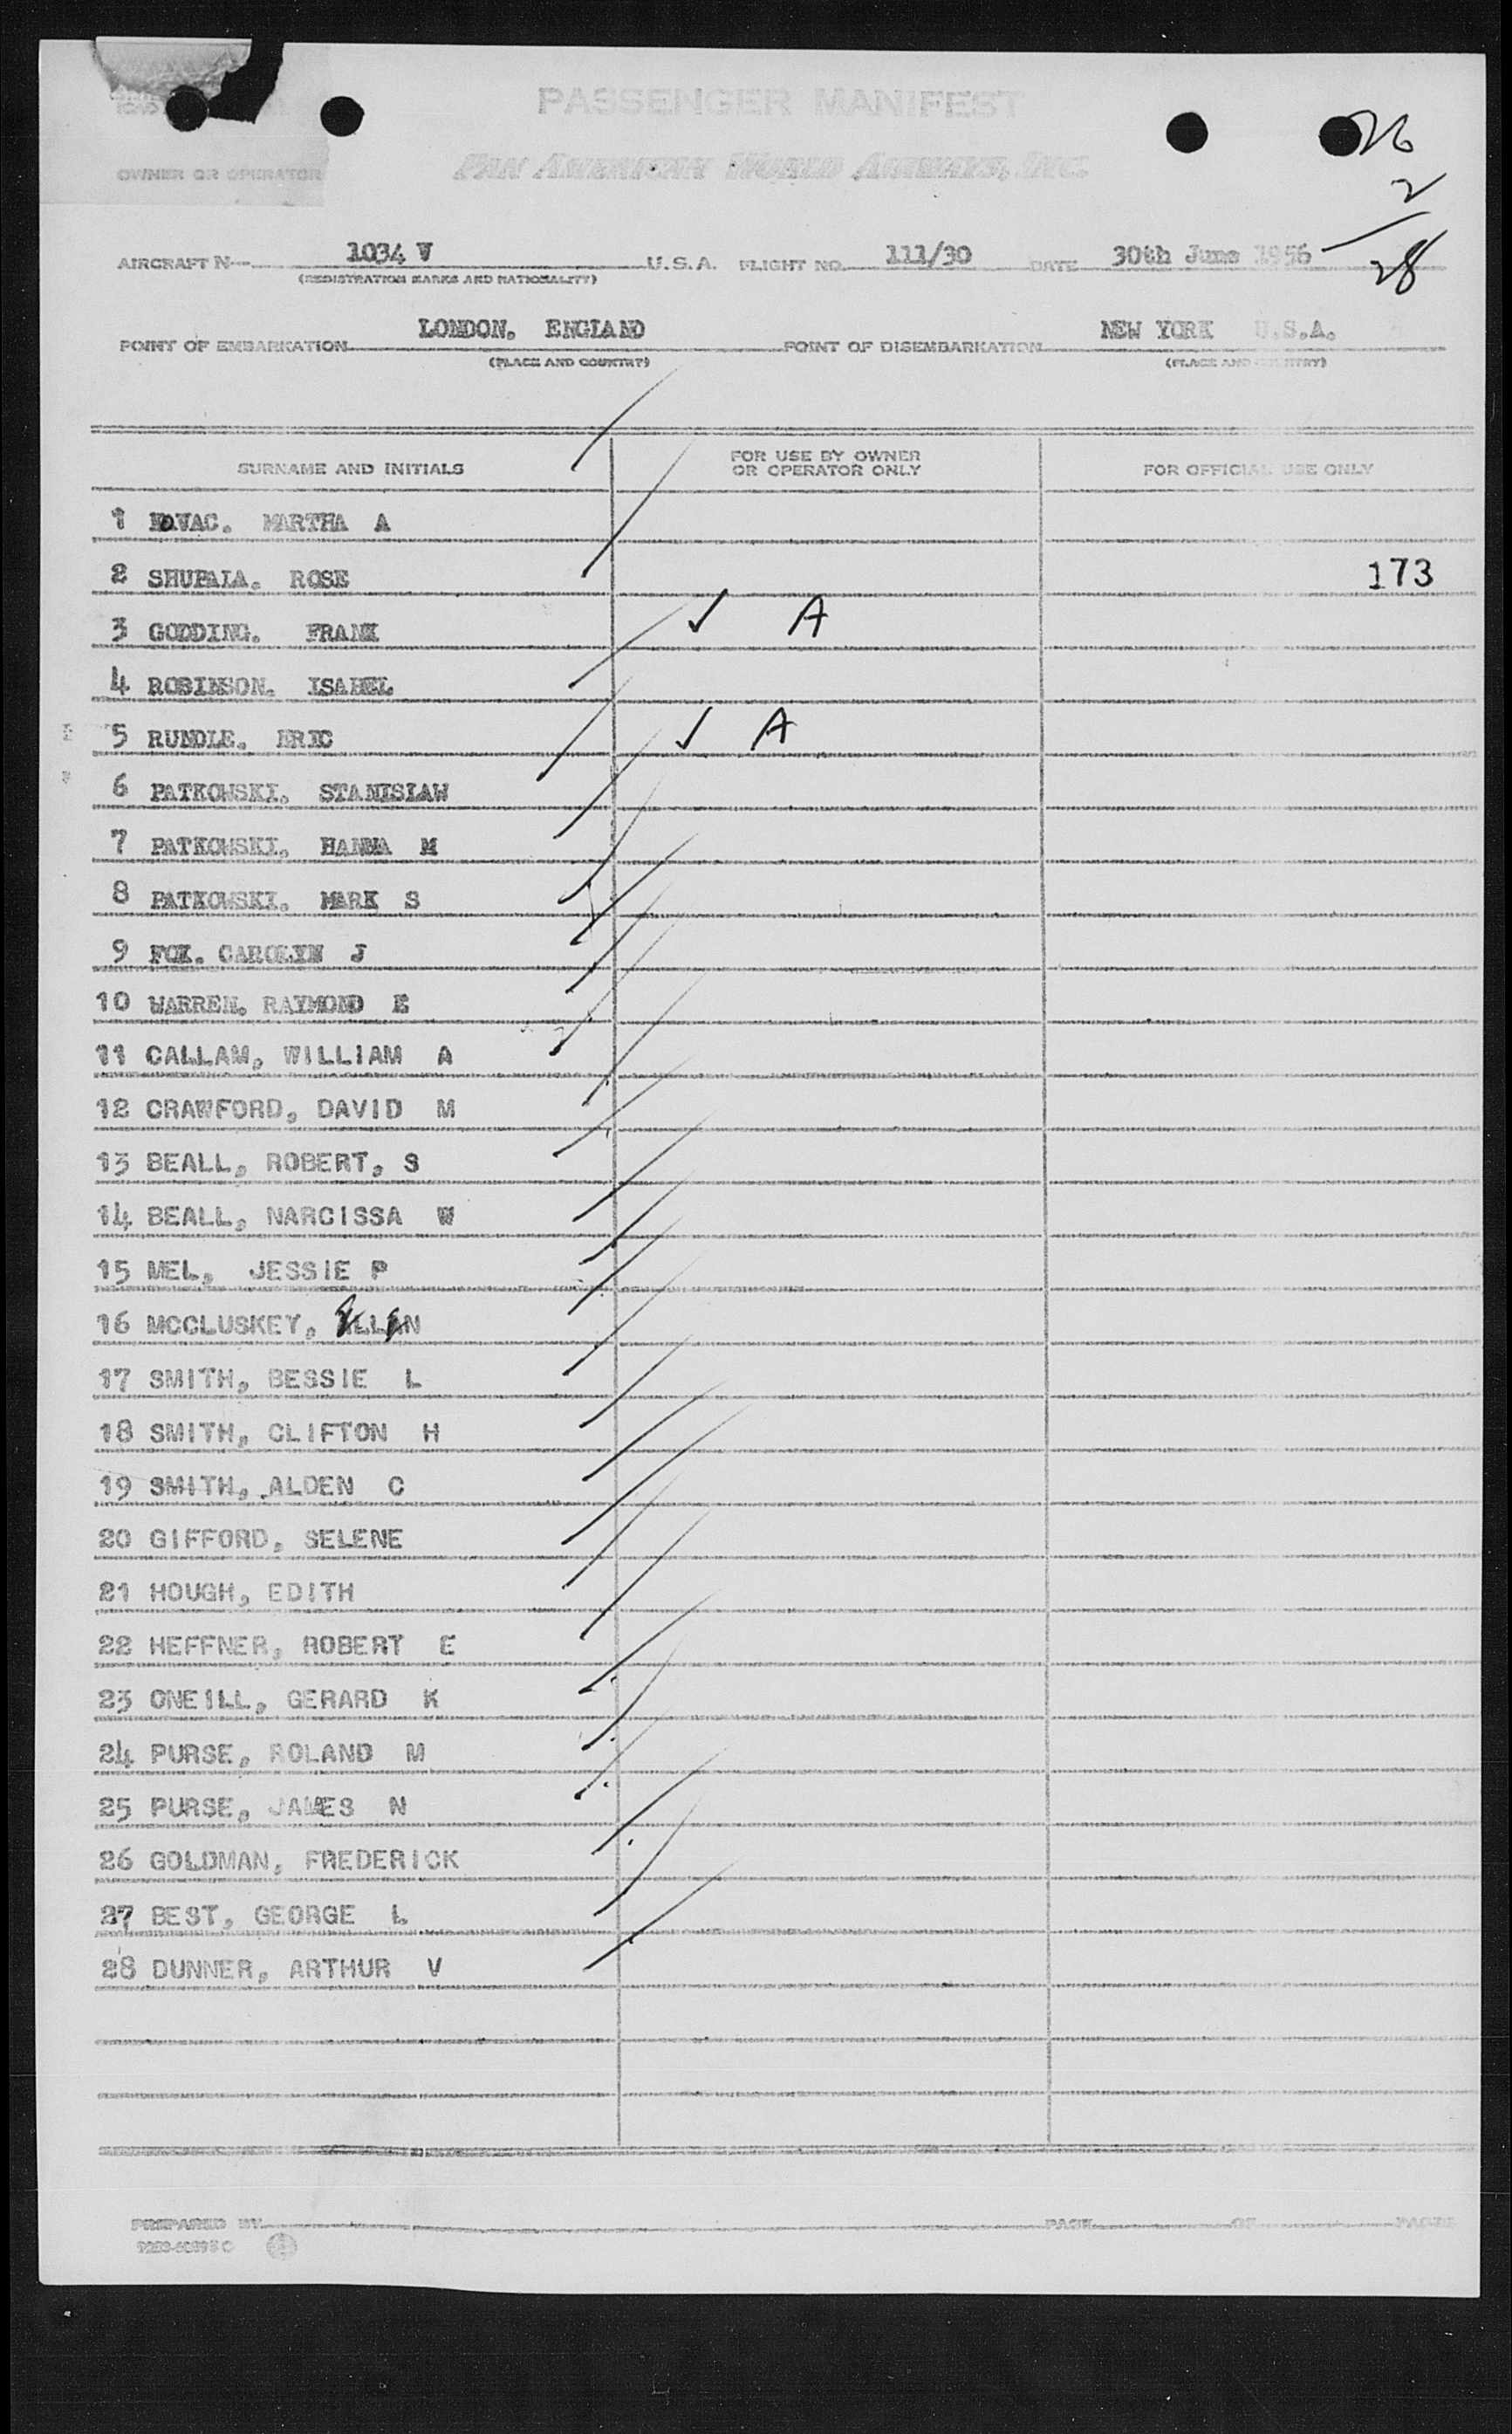 PASSENGER MANIFEST
26
OWNER OR OPERATOR PAN AMERICAN WORLD AIRWAYS, INC.
2
28
AIRCRAFT N 1034 V U.S.A. FLIGHT NO. 111/30 DATE 30th June 1956
(REGISTRATION MARKS AND NATIONALITY)
POINT OF EMBARKATION LONDON. ENGLAND POINT OF DISEMBARKATION NEW YORK U.S.A.
(PLACE AND COUNTRY) (PLACE AND COUNTRY)
SURNAME AND INITIALS FOR USE BY OWNER OR OPERATOR ONLY FOR OFFICIAL USE ONLY
1 MARTHA A
2 SHUPALA. ROSE 173
3 GODDING. FRANK ✓ A
4 ROBINSON. ISABEL
5 RUNDLE. ERIC ✓ A
6 PATKOWSKI. STANISLAW
7 PATKOWSKI. HANNA M
8 PATKOWSKI. MARK S
9 FOX. CAROLYN J
10 WARREN. RAYMOND E
11 CALLAM, WILLIAM A
12 CRAWFORD, DAVID M
13 BEALL, ROBERT, S
14 BEALL, NARCISSA W
15 MEL, JESSIE P
16 MCCLUSKEY,
17 SMITH, BESSIE L
18 SMITH, CLIFTON H
19 SMITH, ALDEN C
20 GIFFORD, SELENE
21 HOUGH, EDITH
22 HEFFNER, ROBERT E
23 ONEILL, GERARD K
24 PURSE, ROLAND M
25 PURSE, JAMES N
26 GOLDMAN, FREDERICK
27 BEST, GEORGE L
28 DUNNER, ARTHUR V
PREPARED BY PAGE OF PAGES